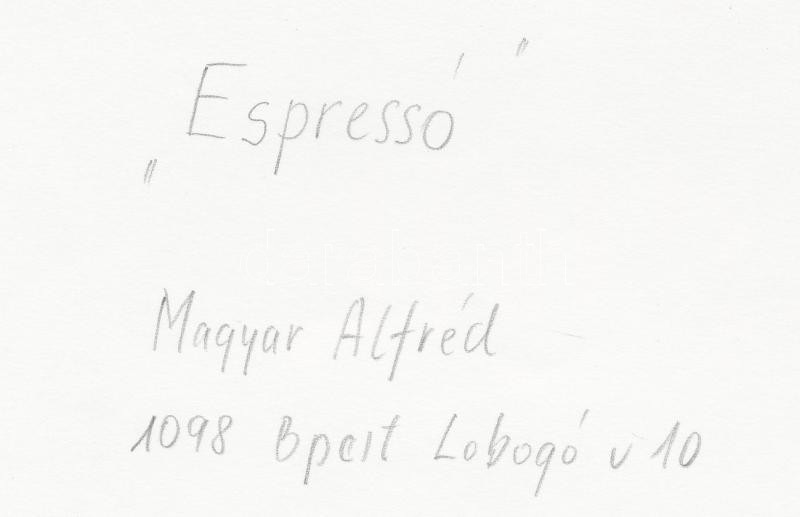 „Espressó"
Magyar Alfréd
1098 Bpest Lobogó u 10